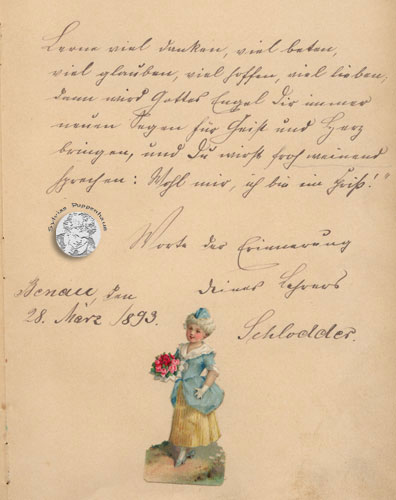 Lerne viel danken, viel beten,
viel glauben, viel hoffen, viel lieben,
dann wird Gottes Engel dir immer
neuen Segen für Geist und Herz
bringen, und Du wirst froh weinend
sprechen: Wohl mir, ich bin im
Sylvias Puppenhaus
Worte der Erinnerung
Benau, den
deines Lehrers
28. März 1893.
Schlodder.